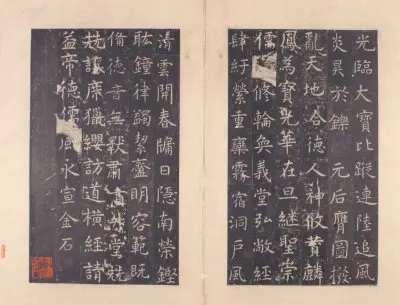 光臨大寶比蹤連陸追風
炎昊於鑠 元后膺圖撥
亂天地合德人神攸贊麟
鳳為寶光華在旦繼聖崇
儒修輪奐義堂弘敞經
肆紆縈重欒霧宿洞戶風
清雲開春牖日隱南榮鏗
鈜鐘律蠲絜齍明容範既
俻德音無斁肅堂兟
兟讓席獵纓訪道橫經請
益帝德儒風永宣金石